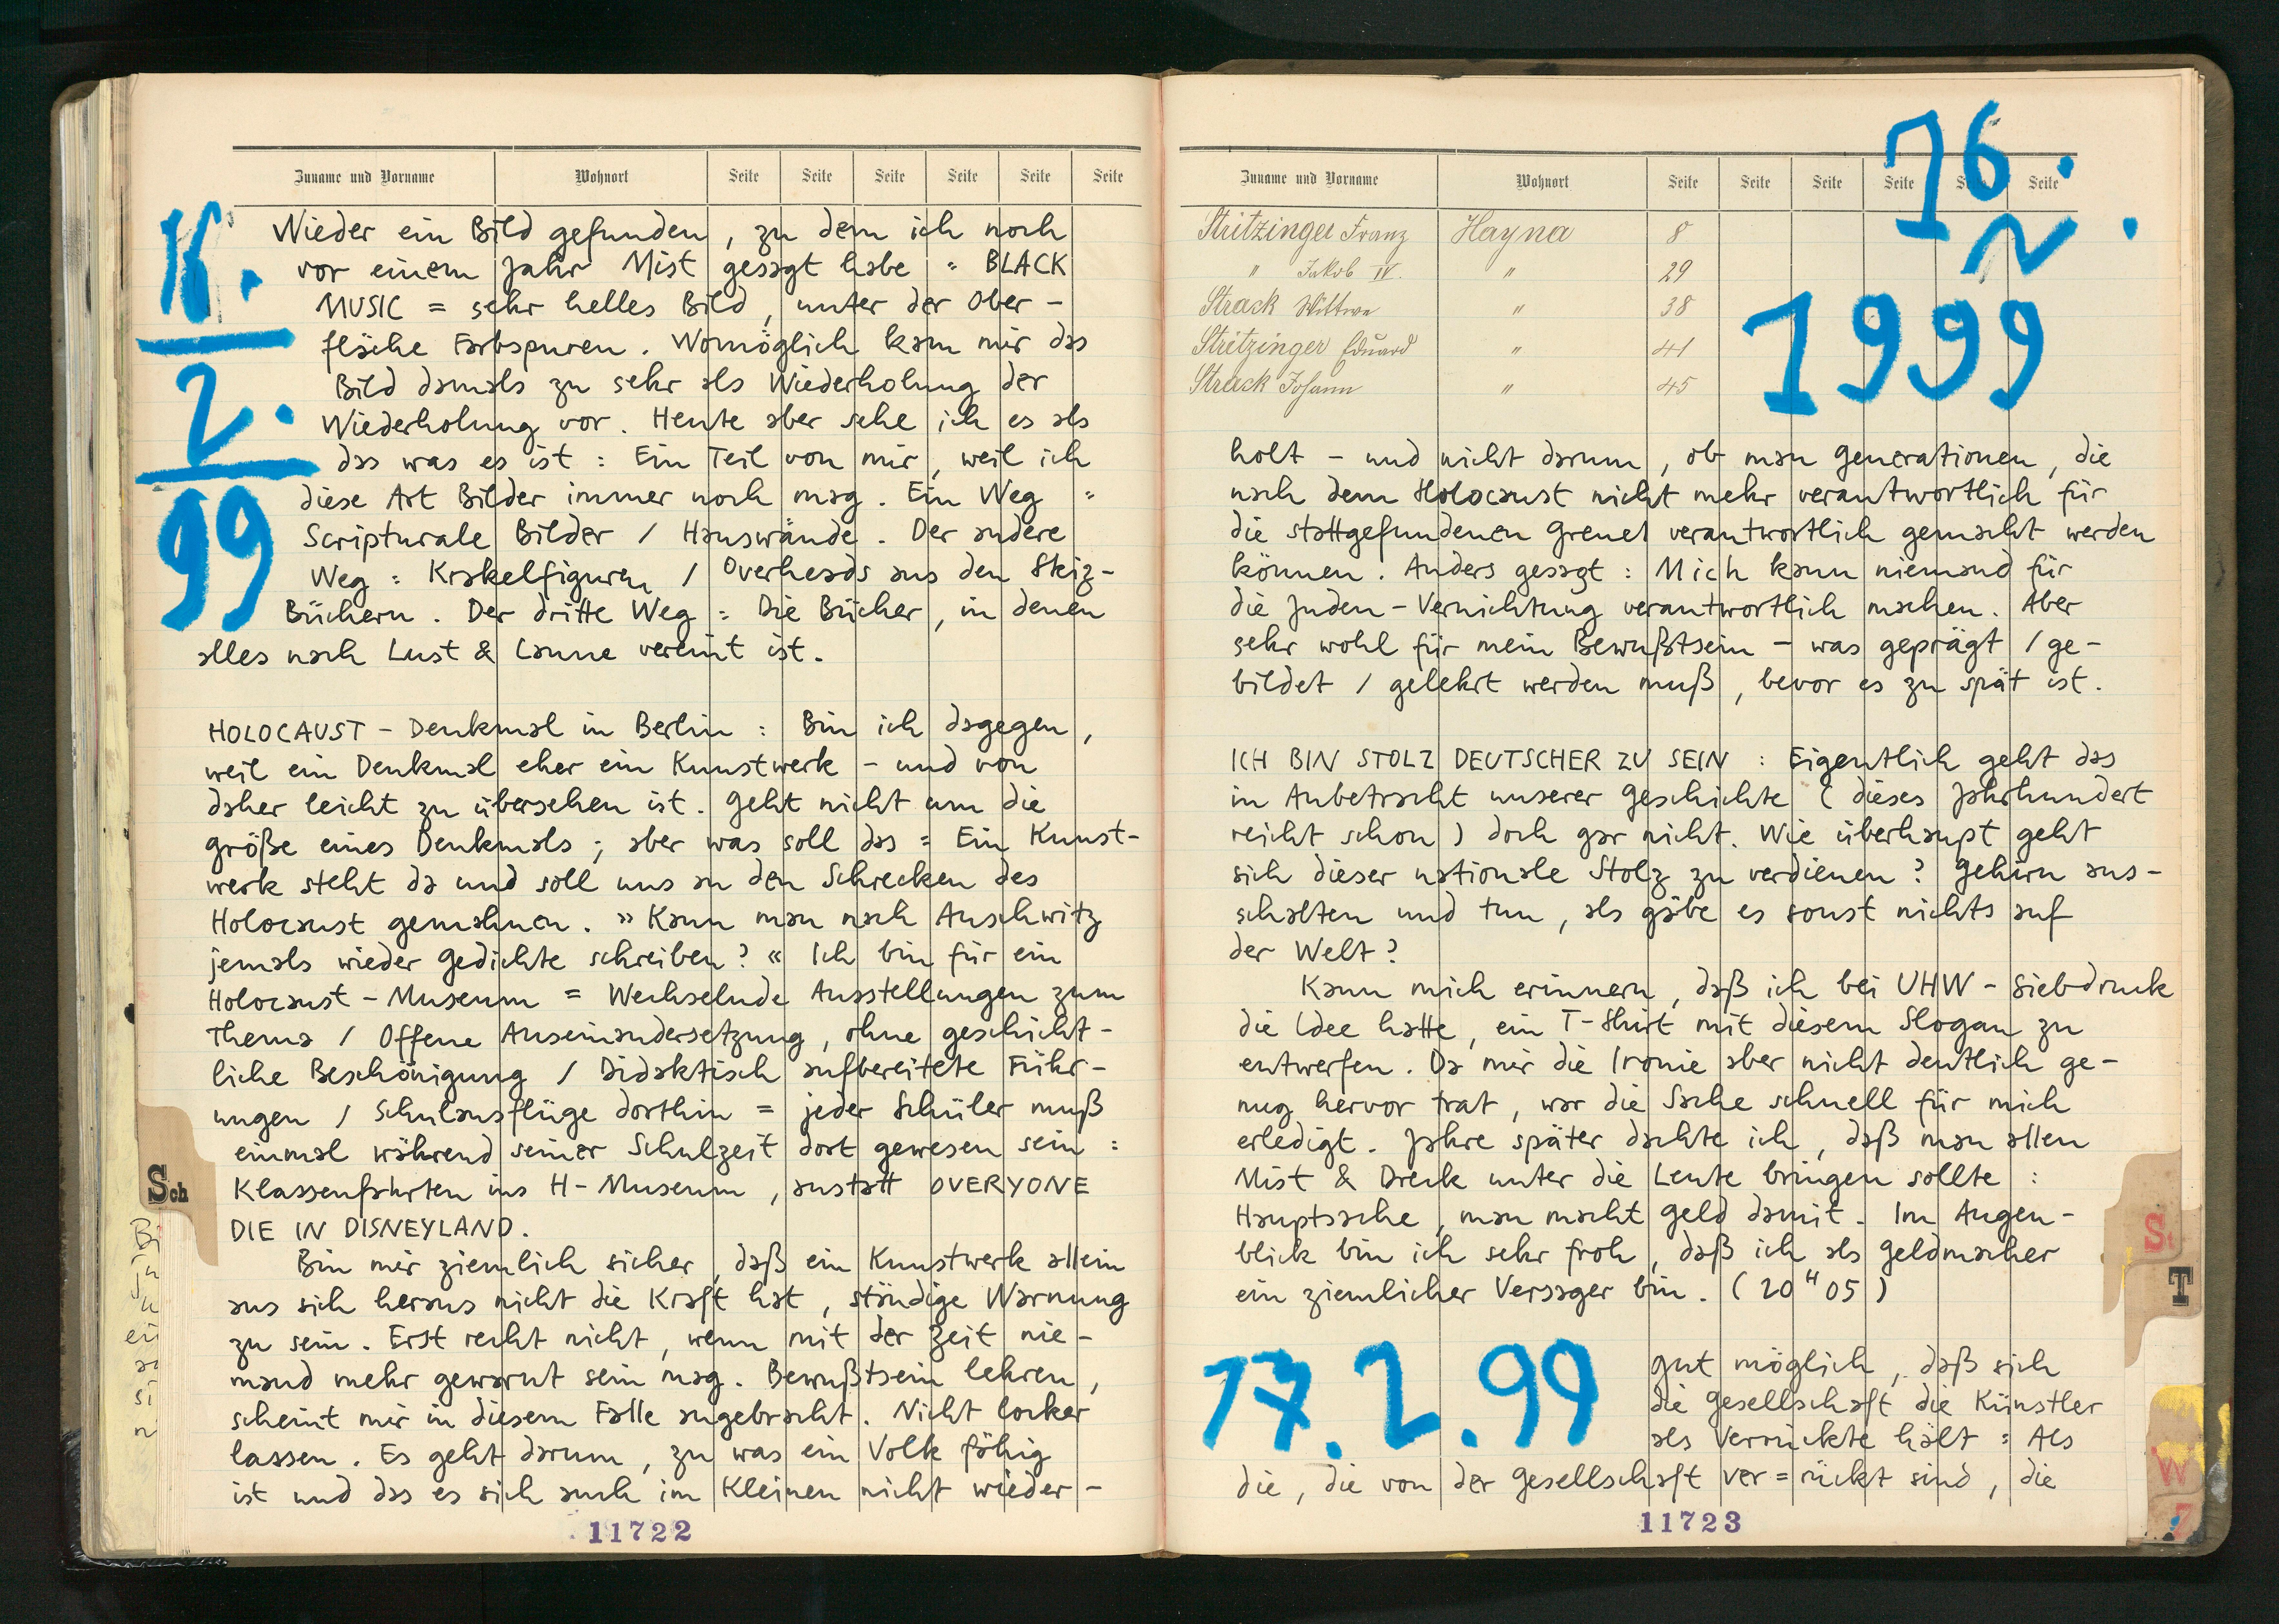 Zuname und Vorname Wohnort Seite Seite Seite Seite Seite Seite
16.
2.
99
Wieder ein Bild gefunden, zu dem ich noch
vor einem Jahr Mist gesagt habe = BLACK
MUSIC = sehr helles Bild, unter der Ober-
fläche Farbspuren. Womöglich kam mir das
Bild damals zu sehr als Wiederholung der
Wiederholung vor. Heute aber sehe ich es als
das was es ist: Ein Teil von mir, weil ich
diese Art Bilder immer noch mag. Ein Weg =
Scripturale Bilder / Hauswände. Der andere
Weg = Krakelfiguren / Overheads aus den Skiz-
Büchern. Der dritte Weg = Die Bücher, in denen
alles nach Lust & Laune vereint ist.
HOLOCAUST - Denkmal in Berlin : Bin ich dagegen,
weil ein Denkmal eher ein Kunstwerk - und von
daher leicht zu übersehen ist. Geht nicht um die
größe eines Denkmals; aber was soll das = Ein Kunst-
werk steht da und soll uns an den Schrecken des
Holocaust gemahnen. »Kann man nach Auschwitz
jemals wieder Gedichte schreiben?« Ich bin für ein
Holocaust - Museum = Wechselnde Ausstellungen zum
Thema / Offene Auseinandersetzung, ohne geschicht-
liche Beschönigung / Didaktisch aufbereitete Führ-
ungen / Schulausflüge dorthin = jeder Schüler muß
einmal während seiner Schulzeit dort gewesen sein :
Klassenfahrten ins H - Museum, anstatt OVERYONE
DIE IN DISNEYLAND.
Bin mir ziemlich sicher, daß ein Kunstwerk allein
aus sich heraus nicht die Kraft hat, ständige Warnung
zu sein. Erst recht nicht, wenn mit der Zeit nie-
mand mehr gewarnt sein mag. Bewußtsein lehren,
scheint mir in diesem Falle angebracht. Nicht locker
lassen. Es geht darum, zu was ein Volk fähig
ist und das es sich auch im Kleinen nicht wieder-
11722
Sch
Zuname und Vorname Wohnort Seite Seite Seite Seite Seite Seite
16.
2.
1999
Stritzinger Franz Hayna 8
" Jakob IV. " 29
Strack Wittwe " 38
Stritzinger Eduard " 41
Strack Johann " 45
holt - und nicht darum, ob man Generationen, die
nach dem Holocaust nicht mehr verantwortlich für
die stattgefundenen Greuel verantwortlich gemacht werden
können. Anders gesagt : Mich kann niemand für
die Juden - Vernichtung verantwortlich machen. Aber
sehr wohl für mein Bewußtsein - was geprägt / ge-
bildet / gelehrt werden muß, bevor es zu spät ist.
ICH BIN STOLZ DEUTSCHER ZU SEIN : Eigentlich geht das
in Anbetracht unserer Geschichte (dieses Jahrhundert
reicht schon) doch gar nicht. Wie überhaupt geht
sich dieser nationale Stolz zu verdienen? Gehirn aus-
schalten und tun, als gäbe es sonst nichts auf
der Welt?
Kann mich erinnern, daß ich bei UHW - Siebdruck
die Idee hatte, ein T-Shirt mit diesem Slogan zu
entwerfen. Da mir die Ironie aber nicht deutlich ge-
nug hervor trat, war die Sache schnell für mich
erledigt. Jahre später dachte ich, daß man allen
Mist & Dreck unter die Leute bringen sollte :
Hauptsache, man macht Geld damit. Im Augen-
blick bin ich sehr froh, daß ich als Geldmacher
ein ziemlicher Versager bin. (20 H 05)
17.2.99
Gut möglich, daß sich
die Gesellschaft die Künstler
als Verrückte hält = Als
die, die von der Gesellschaft ver=rückt sind, die
11723
St
T
W
Z